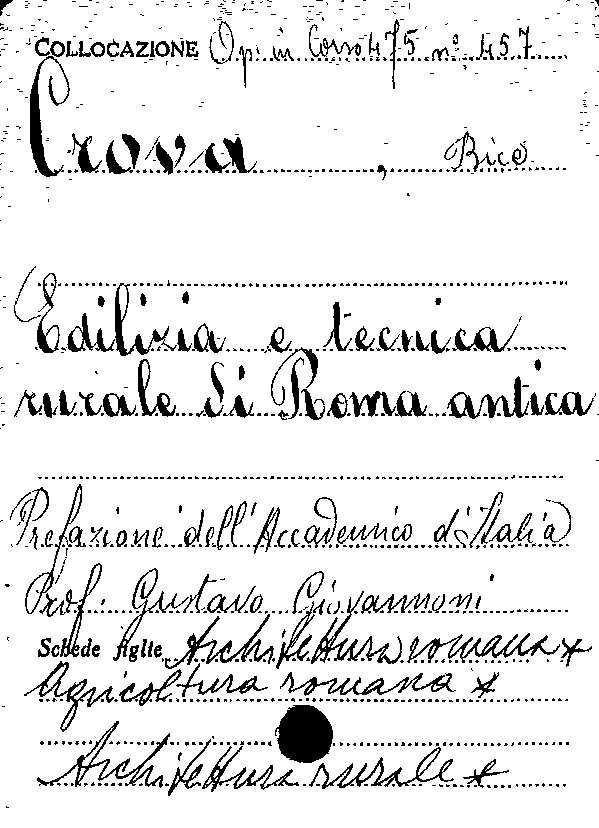 COLLOCAZIONE Op. in Corso 475 n° 457
Crova , Bice
Edilizia e tecnica
rurale di Roma antica
Prefazione dell'Accademico d'Italia
Prof. Gustavo Giovannoni
Schede figlie Architettura romana x
Agricoltura romana x
Architettura rurale x